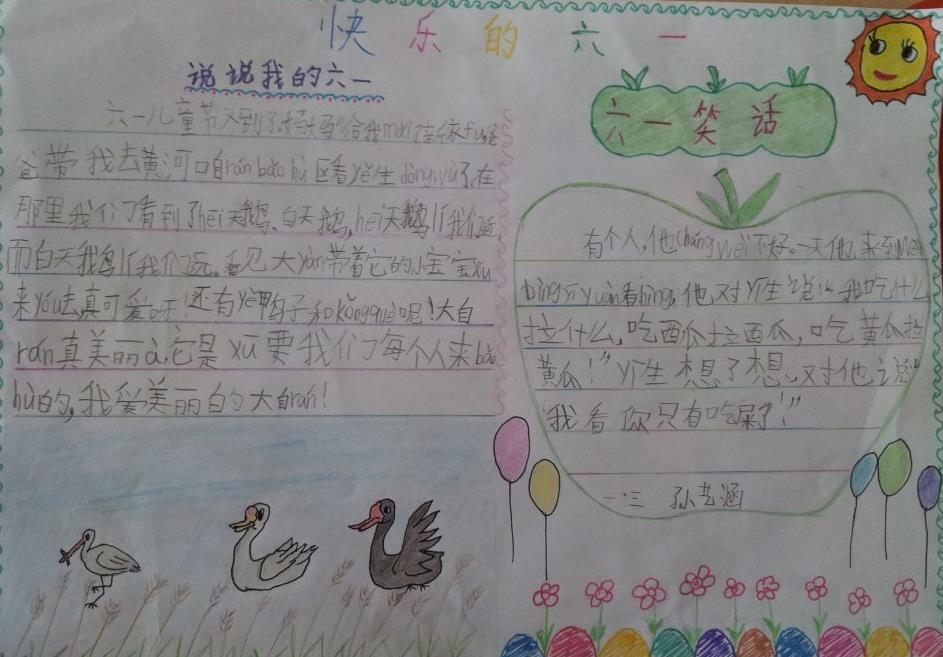 快乐的六一
说说我的六一
六一儿童节又到了,妈妈给我mǎi在衣fu,爸
爸带我去黄河口自rán bǎo hù区看yě生dòngwù了,在
那里我们看到了hēi天鹅、白天鹅,hēi天鹅li我们近
而白天鹅li我们远。看见大yàn带着它的小宝宝yóu
来yóu去,真可爱呀!还有yě鸭子和kǒngquè呢!大自
rán真美丽à,它是xū要我们每个人来bǎo
hù的,我爱美丽的大自rán!
六一笑话
有个人,他cháng wèi不好。一天他,来到mén
bìng yī yuàn看bìng,他对yī生说:"我吃什么
拉什么,吃西瓜拉西瓜,吃黄瓜拉
黄瓜!"yī生想了想,对他说"
"我看你只有吃屎了!"
一.三 孙艺涵